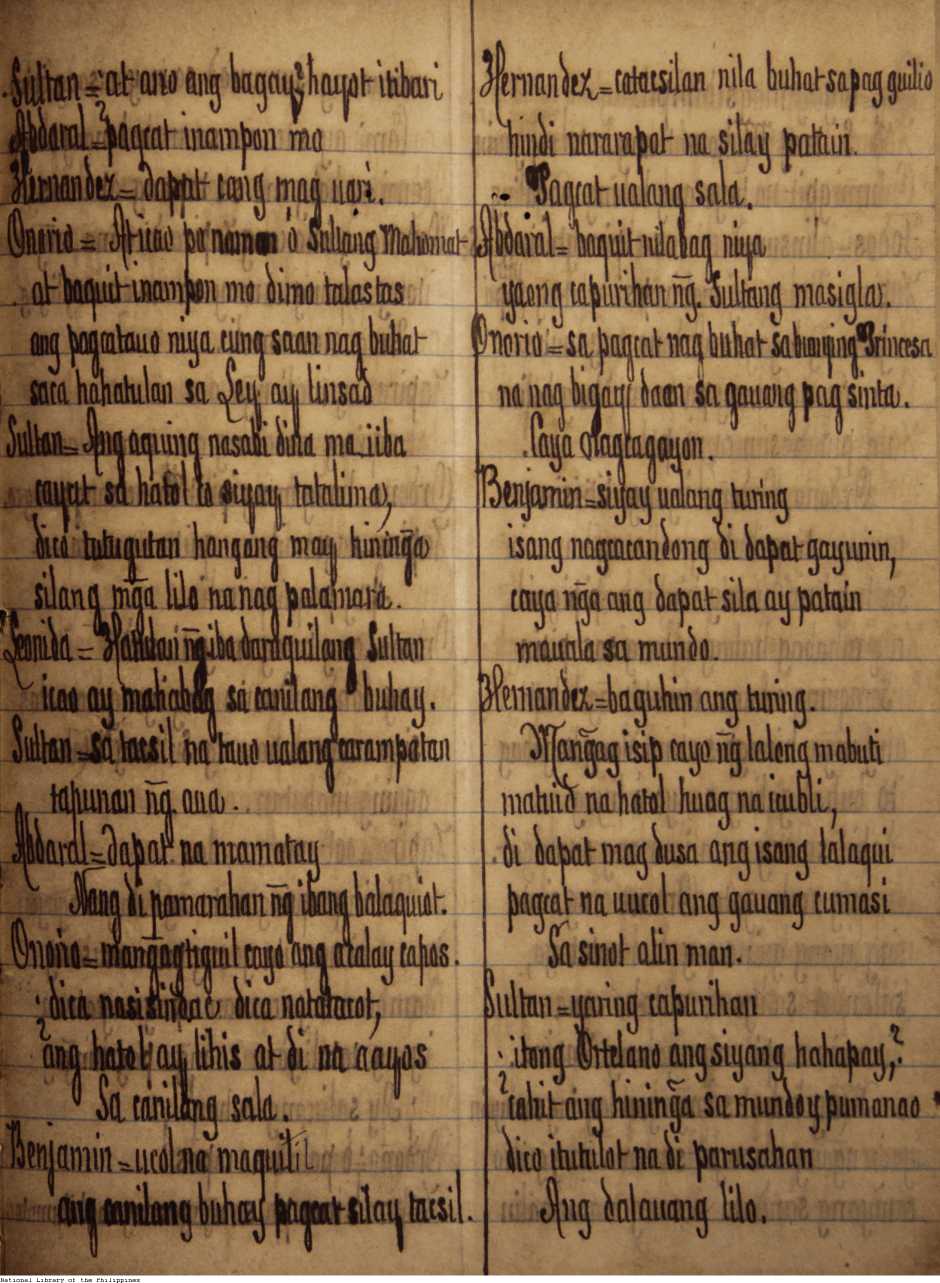 Sultan = ¿at ano ang bagay? hayot itibari
Abdaral = pagcat inampon mo
Hernandez = dapat cang mag uari.
Onorio = Aticao pa naman o Sultang Mahomat
at baquit inampon mo dimo talastas
ang pagcatauo niya cung saan nag buhat
saca hahatulan sa Ley ay linsad
Sultan = Ang aquing nasabi dina ma iiba
cayat sa hatol co siyay tatalima,
dico tutugutan hangang may hininga
silang mg̃a lilo na nag palamara.
ng̃ iba daraquilang Sultan
icao ay mahabag sa canilang buhay.
Sultan = sa tacsil na tauo ualang carampatan
tapunan ng̃ aua.
Abdaral = dapat na mamatay
Nang di pamarahan ng̃ ibang balaquiot.
Onorio = mang̃agtiguil cayo ang atalay capos.
¿dica nasisindac dica natatacot,
¿ang hatol ay lihis at di na aayos
Sa canilang sala.
Benjamin = ucol na maquitil
ang canilang buhay pagcat silay tacsil.
Hernandez = catacsilan nila buhat sa pag guilio
hindi nararapat na silay patain.
Pagcat ualang sala.
Abdaral = baquit nilabag niya
yaong capurihan ng̃ Sultang masigla.
Onorio = sa pagcat nag buhat sa bunying Princesa
na nag bigay daan sa gauang pag sinta.
Caya nagcagayon.
Benjamin = siyay ualang turing
isang nagcacandong di dapat gayunin,
caya ng̃a ang dapat sila ay patain
mauala sa mundo.
Hernandez = baguhin ang turing.
Mang̃ag isip cayo ng̃ lalong mabuti
matuid na hatol huag na icubli,
di dapat mag dusa ang isang lalaqui
pagcat na uucol ang gauang cumasi
Sa sinot alin man.
Sultan = yaring capurihan
¿itong Ortelano ang siyang hahapay,?
¿cahit ang hining̃a sa mundoy pumanao
dico itutulot na di parusahan
Ang dalauang lilo.
National Library of the Philippines